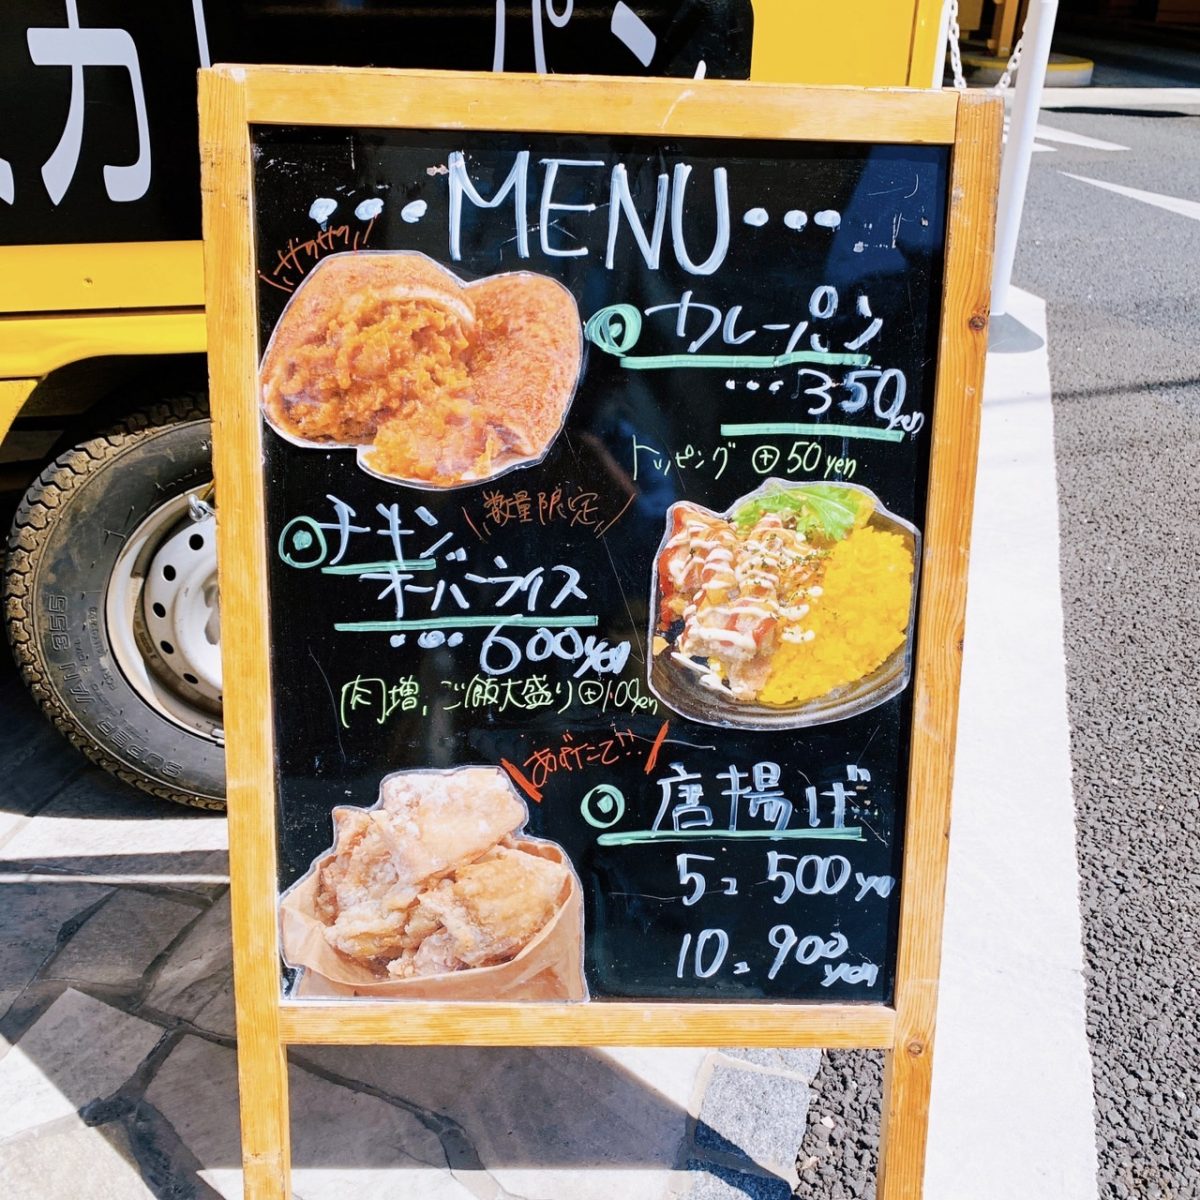 カレーパン
···MENU···
ザクザク!!
カレーパン
···350yen
トッピング⊕50yen
チキン
数量限定
オーバーライス
···600yen
肉増、ご飯大盛り⊕100yen
あげたて!!
唐揚げ
5コ 500yen
10コ 900yen
SUPER VAN 355